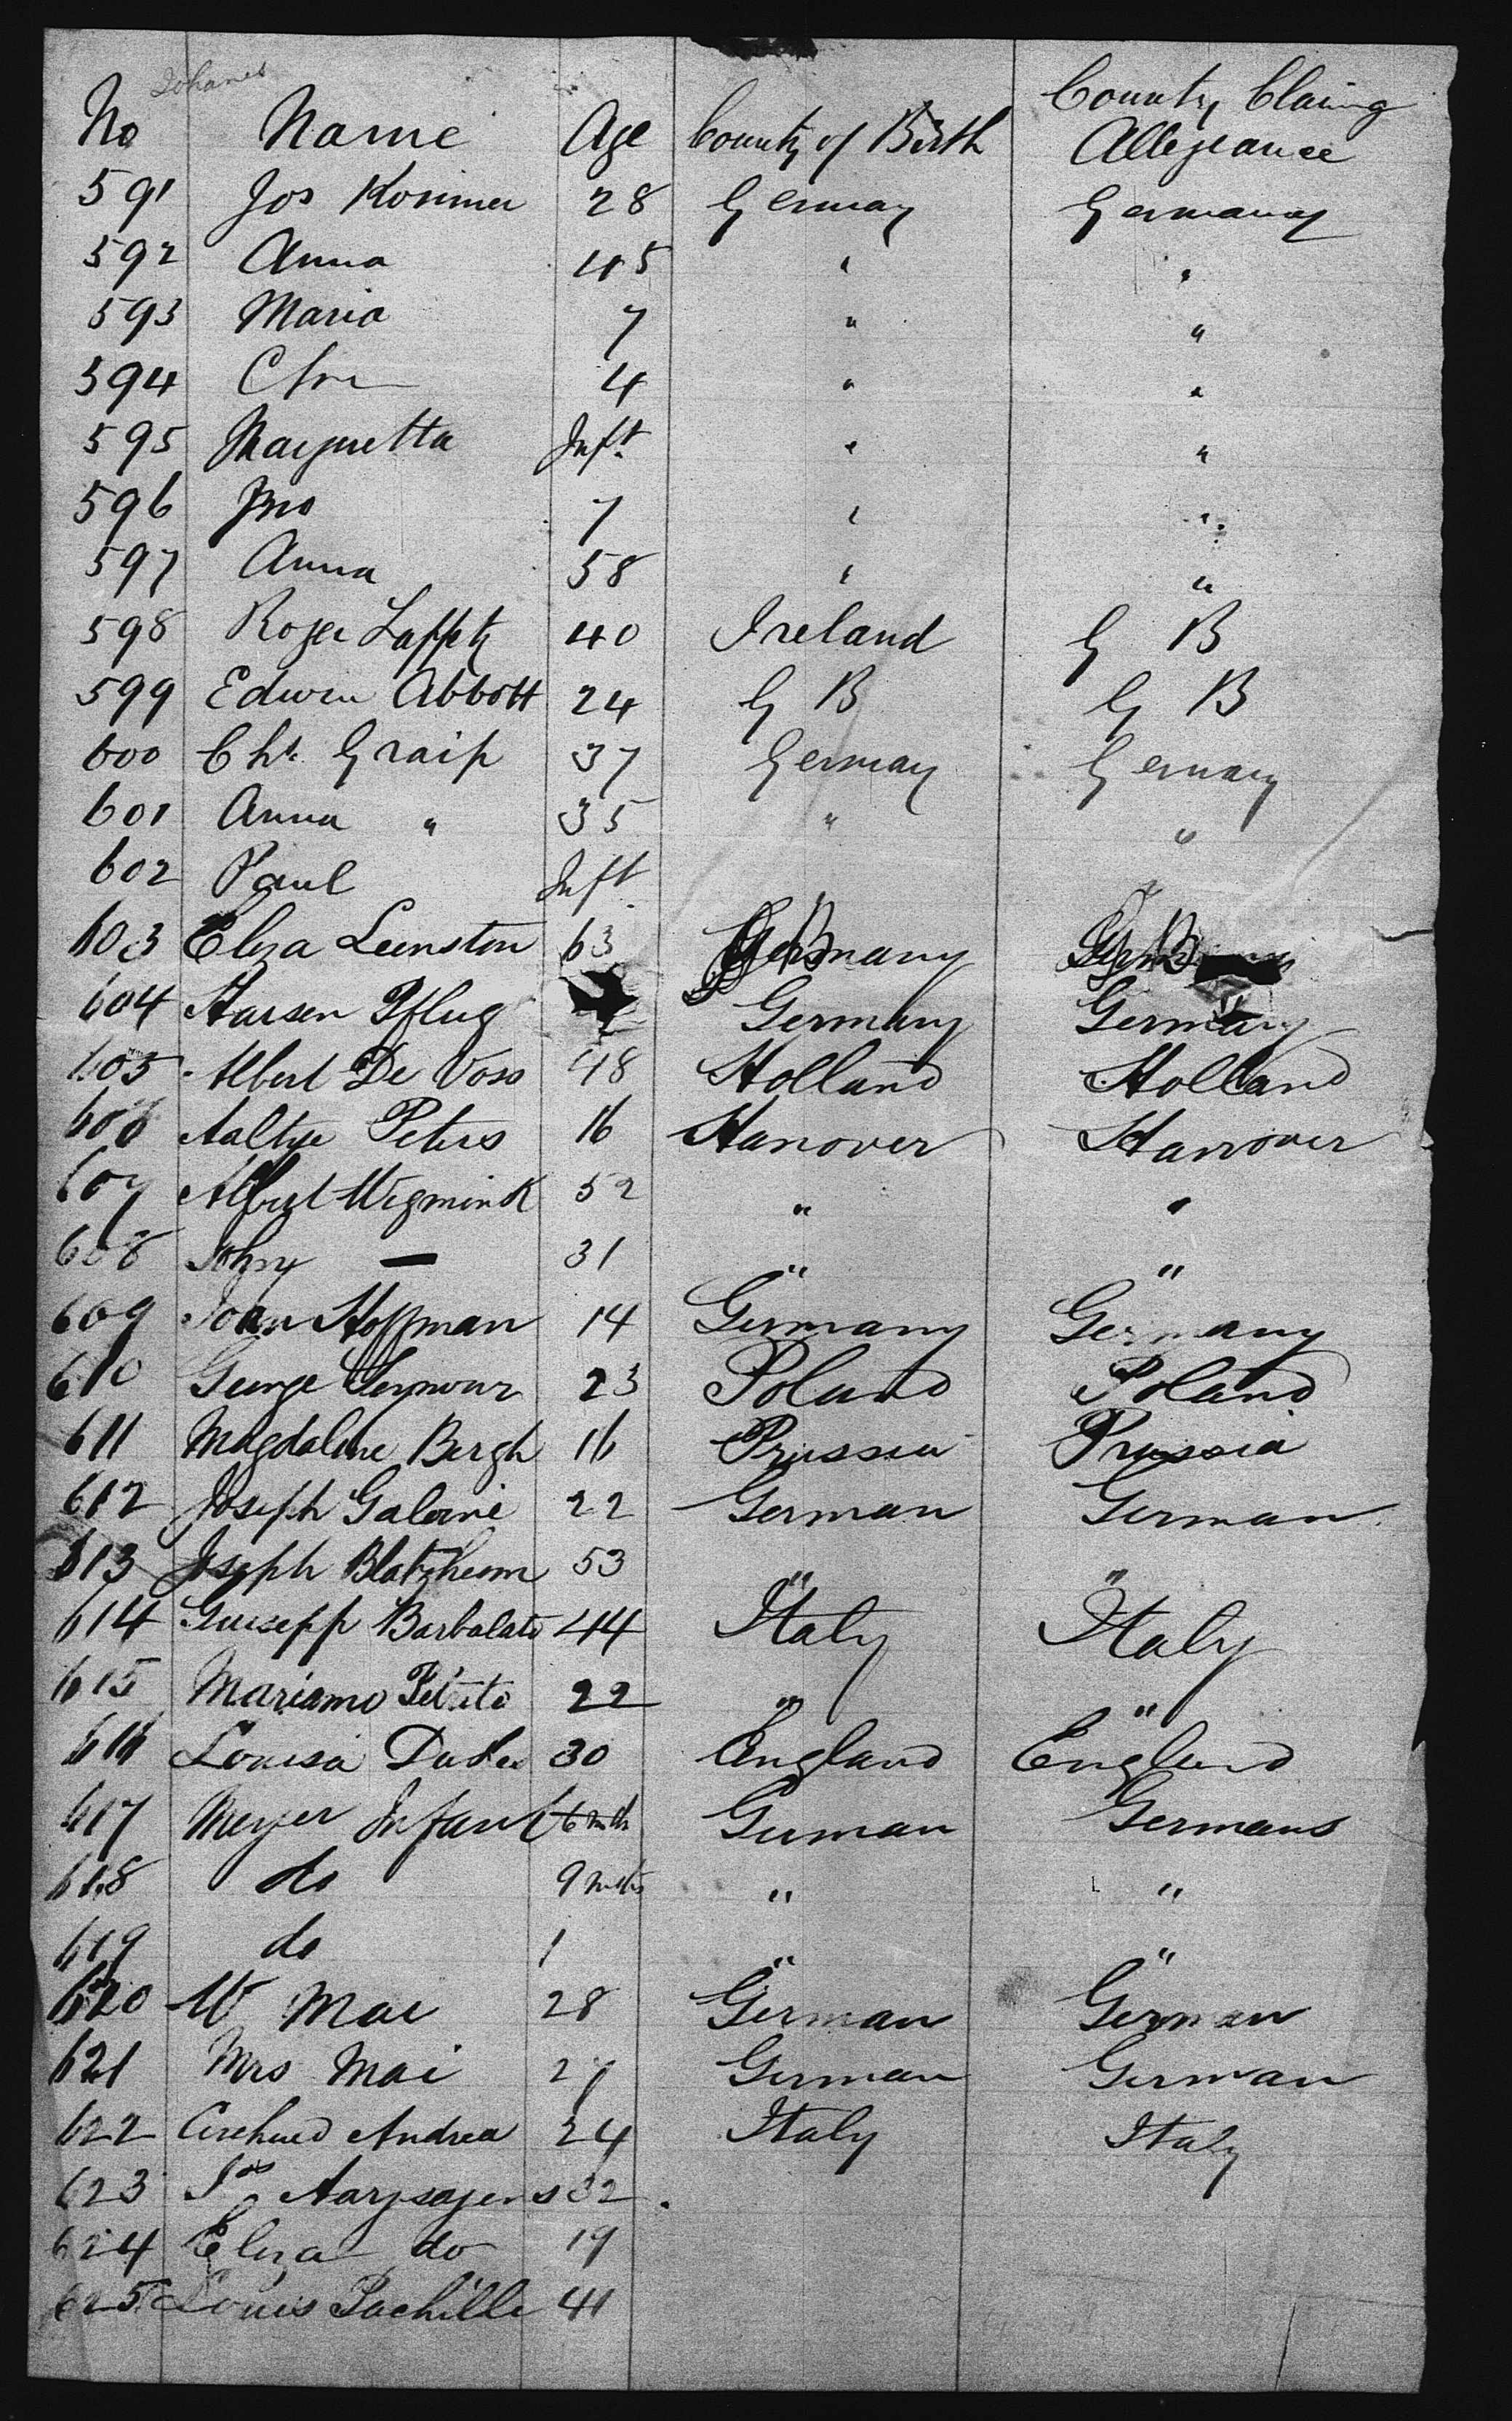 Johanes
No Name Age County of Birth County Claing Allegeance
591 Jos Kommer 28 Germay Germany
592 Anna 45 " "
593 Maria 7 " "
594 Chr 4 " "
595 Margretta Inft " "
596 Jno 7 " "
597 Anna 58 " "
598 Roger Laffety 40 Ireland G B
599 Edwin Abbott 24 G B G B
600 Chs. Graip 37 Germay Germany
601 Anna " 35 " "
602 Paul Inft
603 Eliza Leenston 63 Germany
604 Harsen Pflug Germany Germany
605 Albert De Voss 48 Holland Holland
606 Aaltye Peters 16 Hanover Hanover
607 Albert Wigmink 52 " "
608 John — 31 " "
609 John Hoffman 14 Germany Germany
610 George Seymour 23 Poland Poland
611 Magdaline Bergh 16 Prussia Prussia
612 Joseph Galoini 22 German German
613 Joseph Blatzheim 53 " "
614 Guisepp Barbalato 44 Italy Italy
615 Mariamo 22 " "
616 Louisa 30 England England
617 Meyer Infant 6 mth German Germans
618 do 9 mths " "
619 do 1 " "
620 W Mai 28 German German
621 Mrs Mai 27 German German
622 Andrea 24 Italy Italy
623 Jos 32
624 Eliza do 19
625 Louis Pachille 41